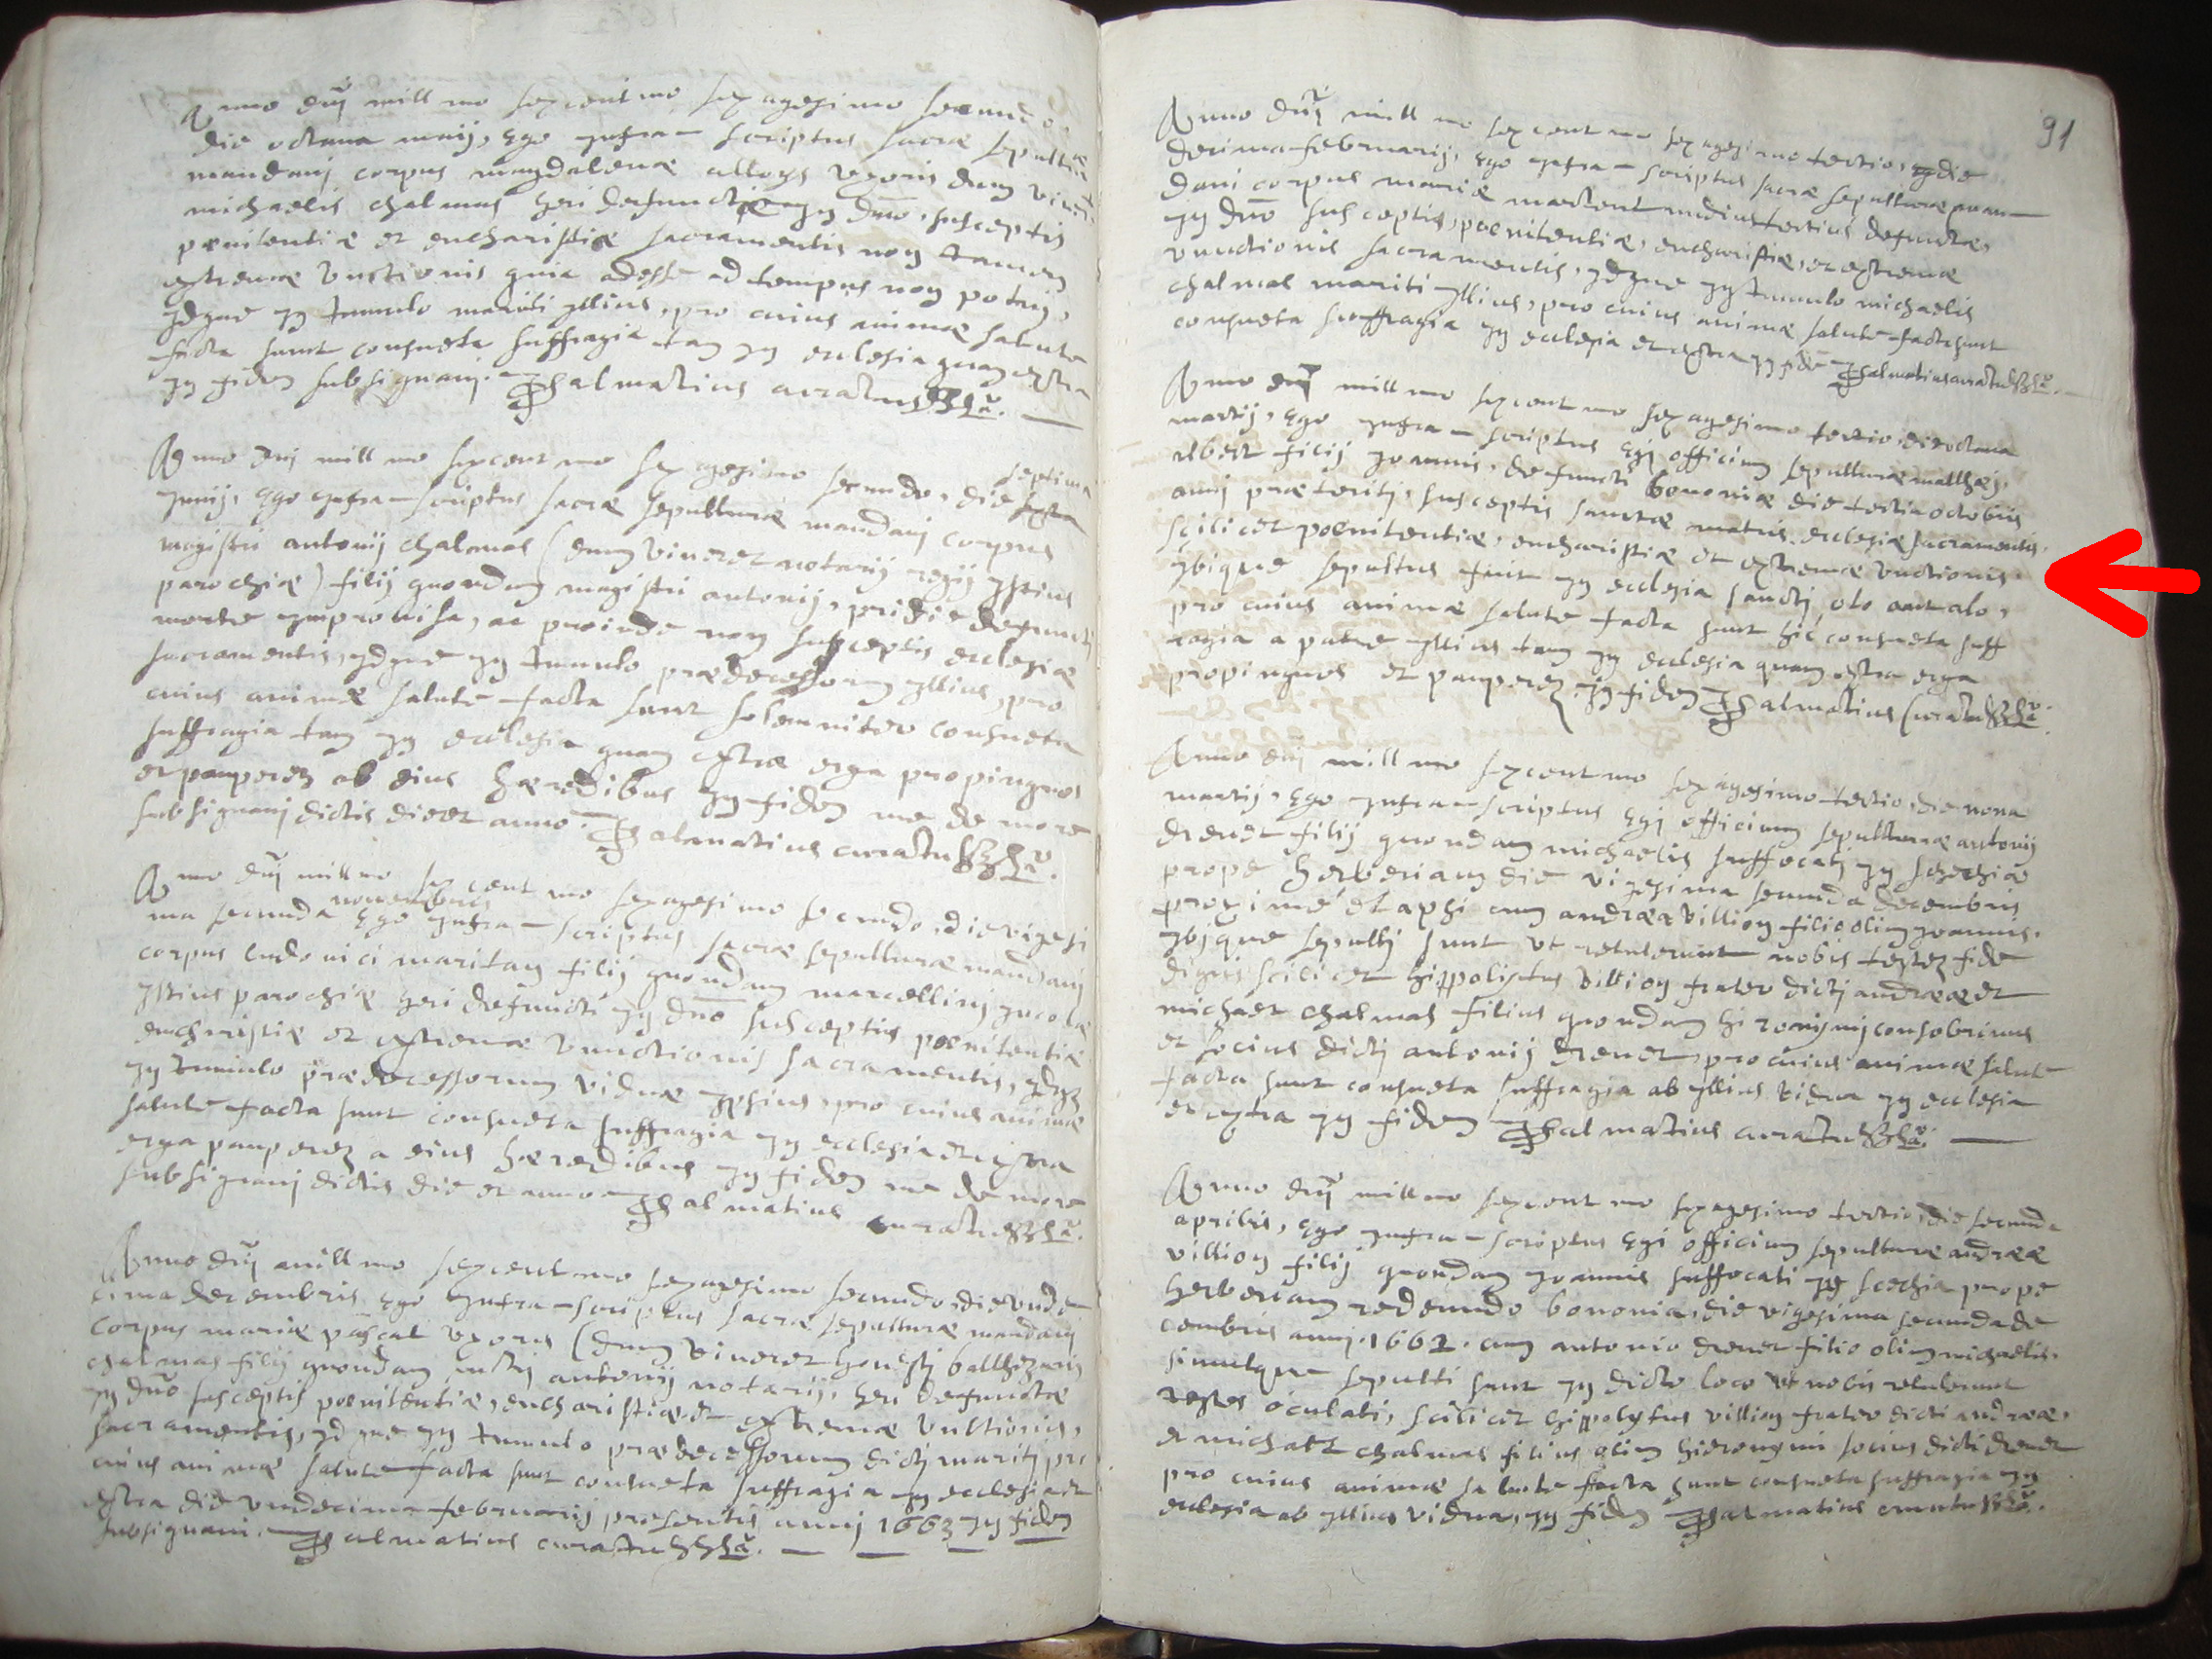 Anno dnj mill mo sexcent mo sexagesimo secundo,
die octaua maij, Ego Infra-scriptus sacræ sepulturæ
mandauj corpus magdalenæ alloys vxoris dum viueret
michaelis chalmas heri defunctæ In dno, susceptis
pœnitentiæ et eucharistiæ sacramentis non tamen
extremæ vnctionis quia adesse ad tempus non potuj,
Idque In tumulo mariti Illius, pro cuius animæ salute
facta sunt consueta suffragia tam In ecclesia quam extra
In fidem subsignauj. Psalmatius curatus
Anno dnj mill mo sexcent mo sexagesimo secundo, die septima
Junij, Ego Infra-scriptus sacræ sepulturæ mandauj corpus
magistri antonij chalmas (dum viueret notarij regij Istius
parochiæ) filij quondam magistri antonij, pridie defuncti
morte Improuisa, ac proinde non susceptis ecclesiæ
sacramentis, Idque In tumulo prædecessorum Illius, pro
cuius animæ salute facta sunt solemniter consueta
suffragia tam In ecclesia quam extra erga propinquos
et pauperes ab eius hæredibus In fidem me de more
subsignauj dictis die et anno. Psalmatius curatus
Anno dnj mill mo sexcent mo sexagesimo secundo, die vigesi
ma secunda nouembris Ego Infra-scriptus sacræ sepulturæ mandauj
corpus ludouici maritan filij quondam marcellinj Incolæ
Istius parochiæ heri defuncti In dno susceptis pœnitentiæ
eucharistiæ et extremæ vnctionis sacramentis, Idque
In tumulo prædecessorum viduæ Ipsius, pro cuius animæ
salute facta sunt consueta suffragia In ecclesia et extra
erga pauperes a eius hæredibus In fidem me de more
subsignauj dictis die et anno Psalmatius curatus
Anno dnj mill mo sexcent mo sexagesimo secundo, die vnde
cima decembris Ego Infra-scriptus sacræ sepulturæ mandauj
corpus mariæ pascal vxoris (dum viueret honesti balthezaris
chalmas filij quondam antonij notarij, heri defunctæ
In dno susceptis pœnitentiæ, eucharistiæ et extremæ vnctionis,
sacramentis, Idque In tumulo prædecessorum dictj maritj pro
cuius animæ salute facta sunt consueta suffragia In ecclesia et
extra die vndecima februarij presentis annj 1663 In fidem
subsignaui. Psalmatius curatus
91
Anno dnj mill mo sexcent mo sexagesimo tertio, die
decima februarij, Ego Infra-scriptus sacræ sepulturæ man-
daui corpus mariæ martent nudiustertius defunctæ,
In dno susceptis, pœnitentiæ, eucharistiæ, et extremæ
vnctionis sacramentis, Idque In tumulo michaelis
chalmas mariti Illius, pro cuius animæ salute facta sunt
consueta suffragia In ecclesia et extra In fidem Psalmatius curatus
Anno dnj mill mo sexcent mo sexagesimo tertio, die octaua
martij, Ego Infra-scriptus Egj officium sepulturæ matthæj
albert filij Joannis, defuncti bononiæ die tertia octobris
annj præteritj, susceptis sanctæ matris ecclesiæ sacramentis,
scilicet pœnitentiæ, eucharistiæ et extremæ vnctionis
Ibique sepultus fuit In ecclesia sanctj
pro cuius animæ salute facta sunt hîc consueta suff
ragia a patre Illius tam In ecclesia quam extra erga
propinquos et pauperes. In fidem Psalmatius curatus
Anno dnj mill mo sexcent mo sexagesimo tertio, die nona
martij, Ego Infra-scriptus Egj officium sepulturæ antonij
dreuet filij quondam michaelis suffocatj In secchia
prope herberiam die vigesima secunda decembris
proximé elapsi cum andræa villion filio olim Joannis,
Ibique sepultj sunt vt retulerunt nobis testes fide
digni scilicet hippolistus villion frater dictj andreæ et
michaet chalmas filius quondam hironijmj consobrinus
et socius dictj antonij dreuet, pro cuius animæ salute
facta sunt consueta suffragia ab Illius vidua In ecclesia
et extra In fidem Psalmatius curatus
Anno dnj mill mo sexcent mo sexagesimo tertio, die secunda
aprilis, Ego Infra-scriptus Egi officium sepulturæ andreæ
villion filij quondam Joannis suffocati In secchia prope
herberiam redeundo bononia, die vigesima secunda de
cembris annj 1662. cum antonio dreuet filio olim michaelis,
simulque sepulti sunt In dicto loco vt nobis retulerunt
testes oculati, scilicet hippolytus villion frater dicti andreæ,
et michaet chalmas filius olim hieronymi socius dicti dreuet
pro cuius animæ salute facta sunt consueta suffragia In
ecclesia ab Illius vidua, In fidem Psalmatius curatus